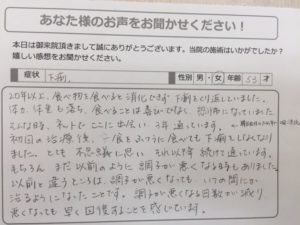 あなた様のお声をお聞かせください！
本日は御来院頂きまして誠にありがとうございます。当院の施術はいかがでしたか？
嬉しい感想をお聞かせください。
症状 下痢 性別 男・女 年齢 53才
20年以上、食べ物を食べると消化できず下痢をくり返していました。
体力、体重も落ち、食べることは喜びでなく、恐怖になっていました
そんな時、ネットでここに出会い、3年通っています。
初回の治療後、ご飯をふつうに食べても下痢をしなくなり
ました。とても不思議に思い、それ以降続けて通っています。
もちろん、まだ以前のように調子が悪くなる時もありました。
以前と違うところは、調子が悪くなっても、いつの間にか
治るようになったことです。調子が悪くなる日数が減り
悪くなっても早く回復することを感じています。